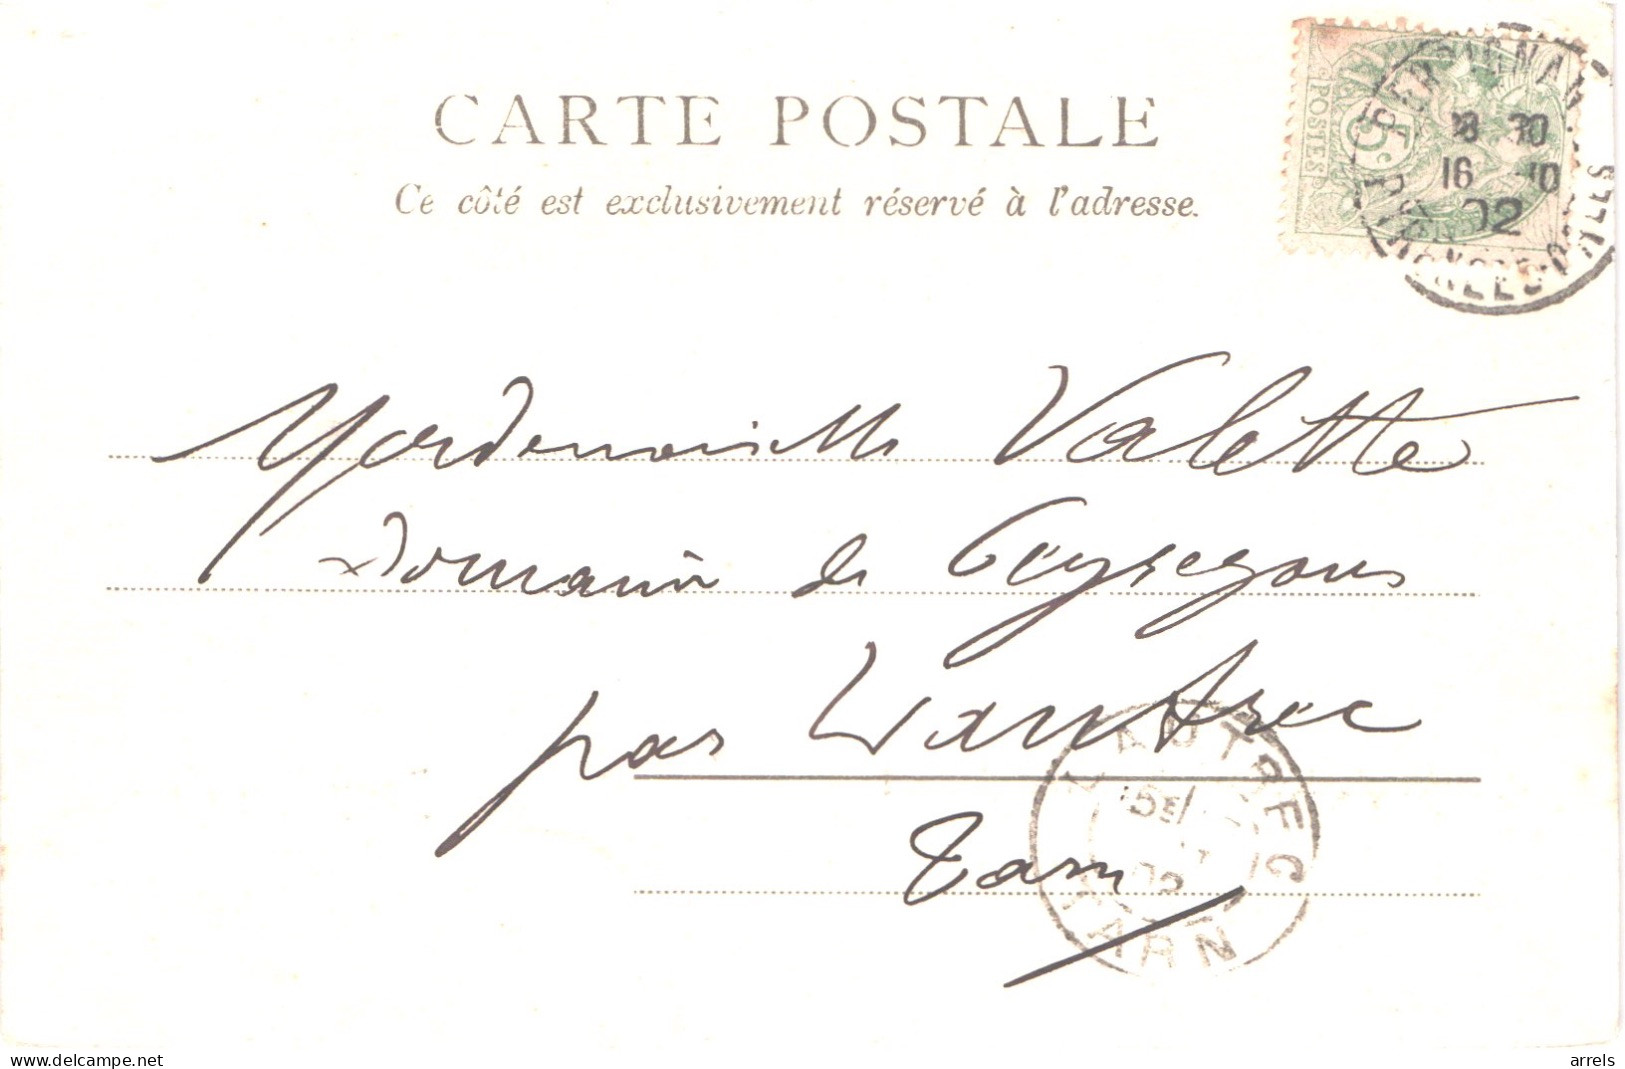 CARTE POSTALE
Ce côté est exclusivement réservé à l'adresse.
POSTES
5c
PERPIGNAN
18 30
16 10
02
PYRÉNÉES-ORIENTALES
Mademoiselle Valette
Domaine de Peyregous
par Lautrec
Tarn
LAUTREC
02
TARN
www.delcampe.net
arrels